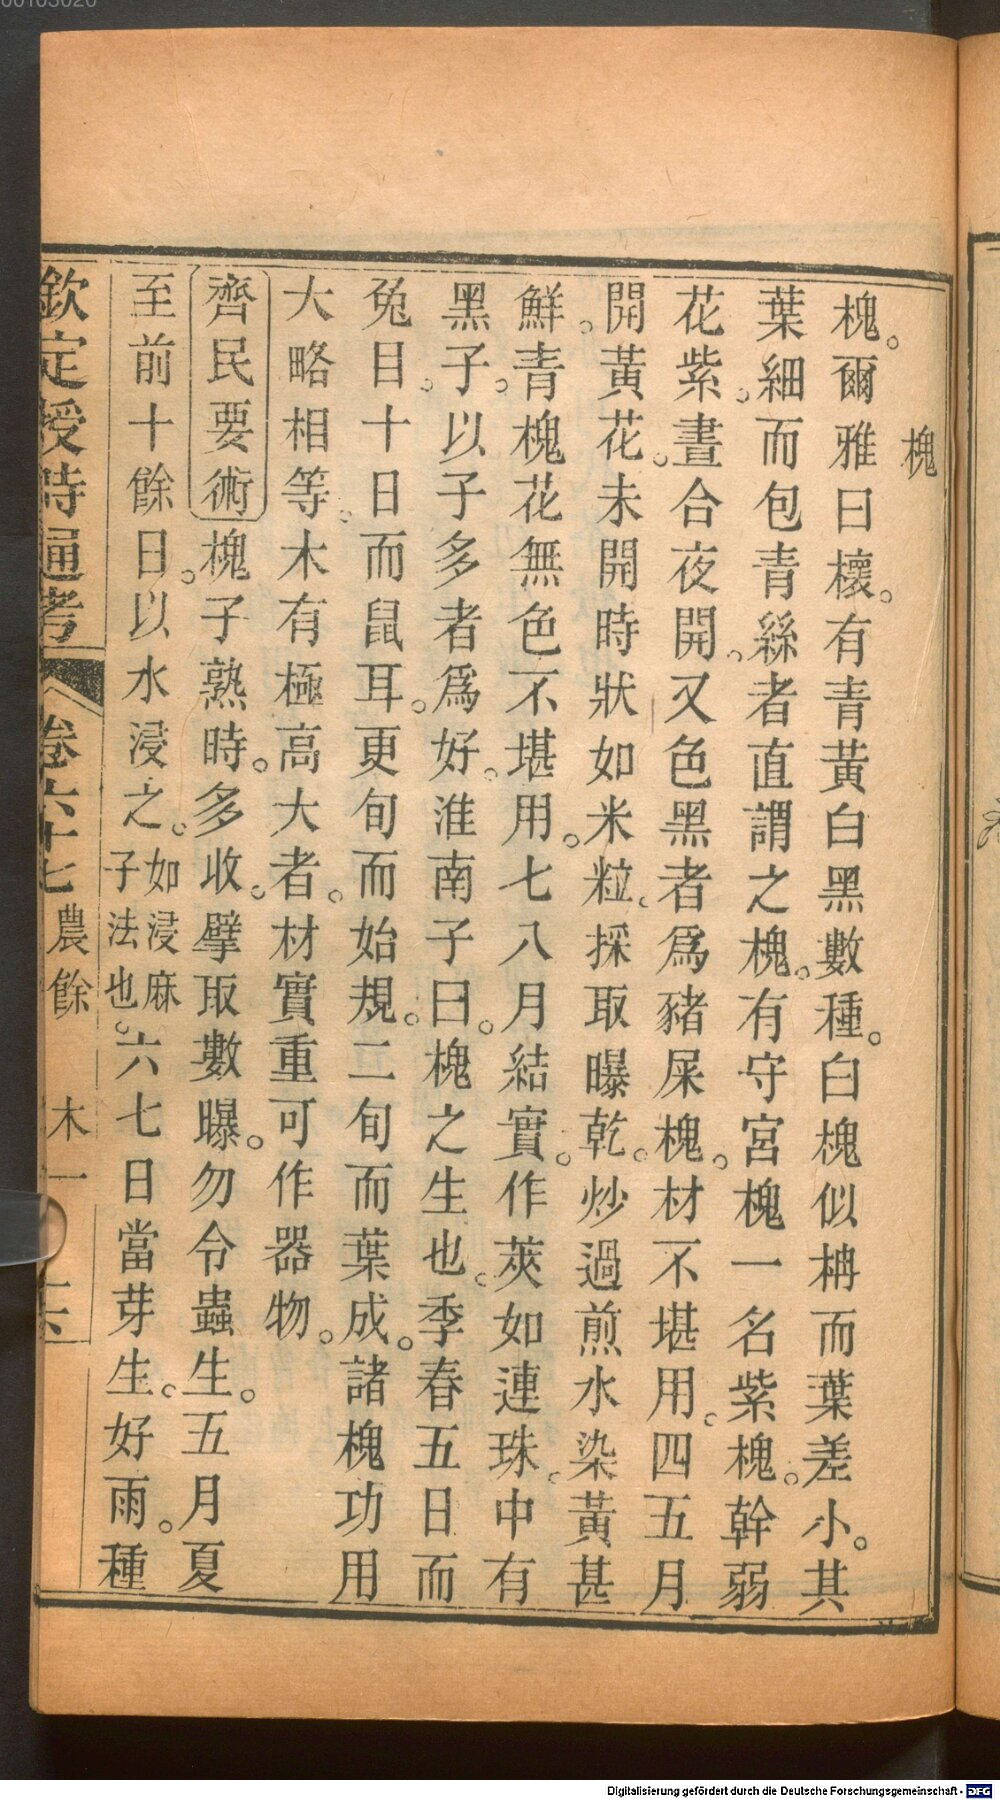 槐
槐。爾雅曰櫰。有青黃白黑數種。白槐似柟而葉差小。其
葉細而包青絲者直謂之槐。有守宮槐一名紫槐。幹弱
花紫。晝合夜開。又色黑者爲豬屎槐。材不堪用。四五月
開黃花。未開時狀如米粒。採取曝乾。炒過煎水染黃甚
鮮。青槐花無色不堪用。七八月結實。作莢如連珠。中有
黑子。以子多者爲好。淮南子曰。槐之生也。季春五日而
兔目。十日而鼠耳。更旬而始規。二旬而葉成。諸槐功用
大略相等。木有極高大者。材實重可作器物。
齊民要術槐子熟時。多收。擘取數曝。勿令蟲生。五月夏
至前十餘日。以水浸之。如浸麻子法也。六七日當芽生。好雨。種
欽定授時通考 卷六十七 農餘 木一
00103020
Digitalisierung gefördert durch die Deutsche Forschungsgemeinschaft - DFG